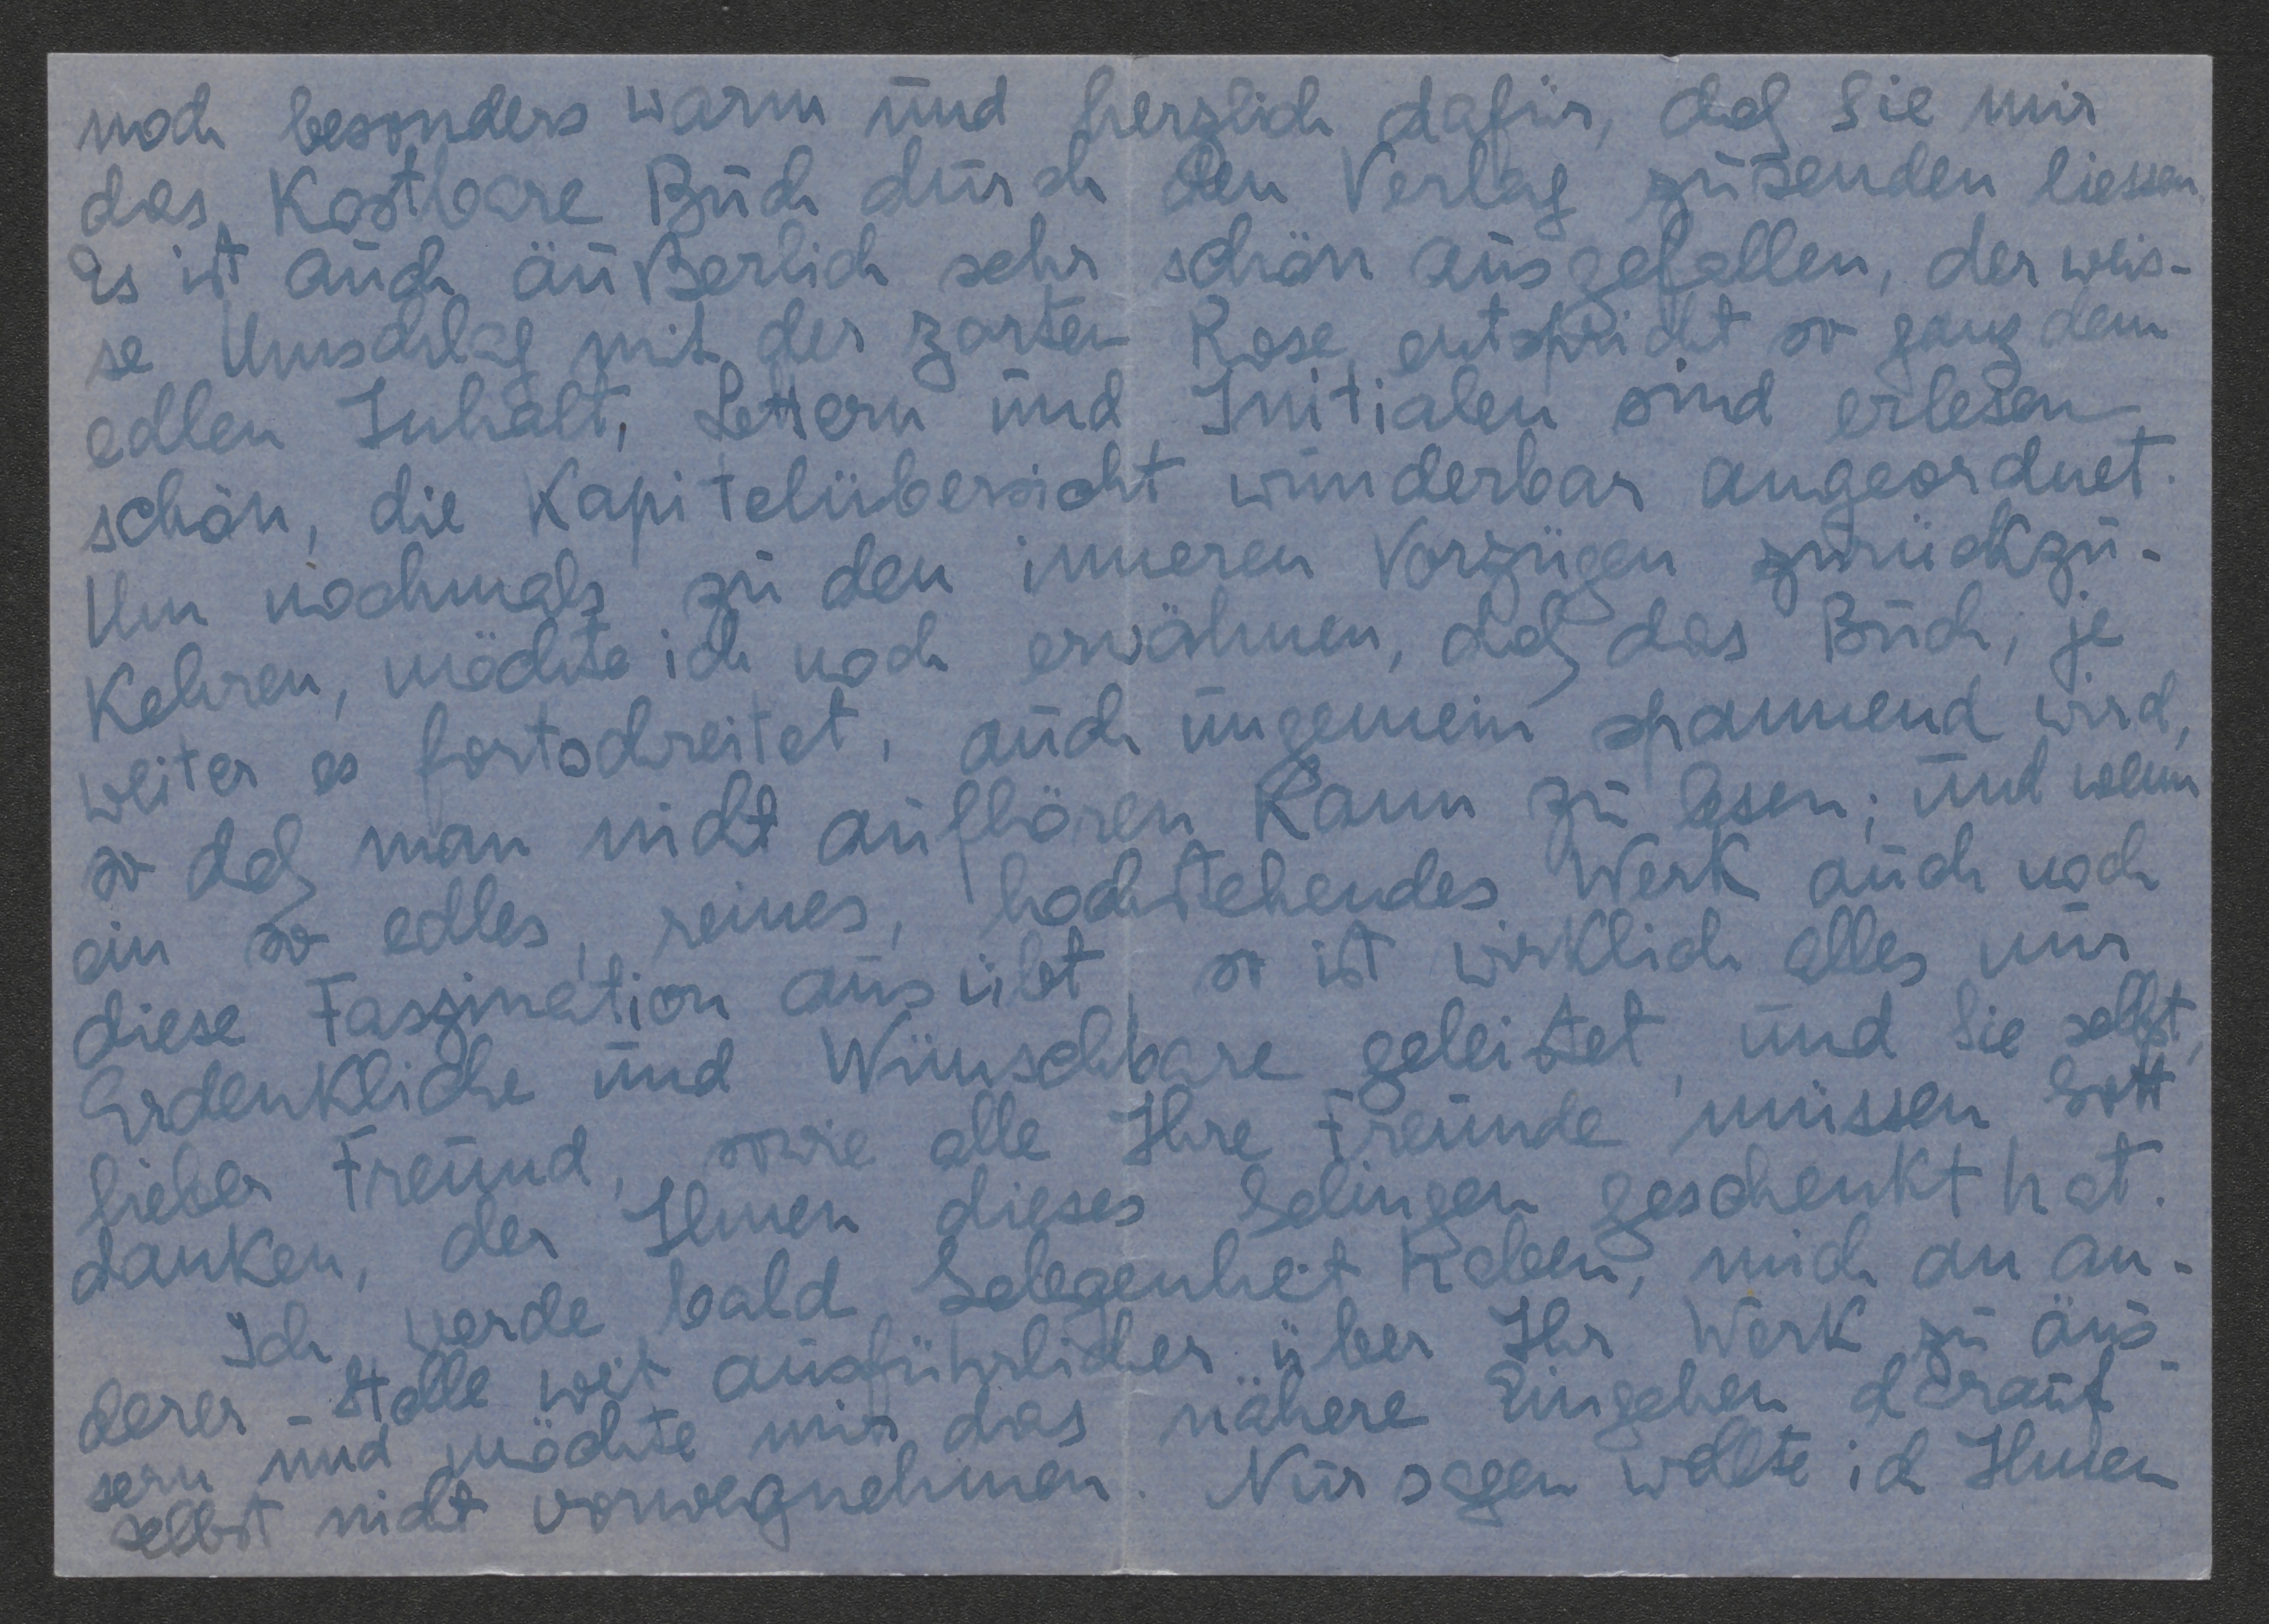 noch besonders warm und herzlich dafür, daß Sie mir
das kostbare Buch durch den Verlag zusenden liessen.
Es ist auch äußerlich sehr schön ausgefallen, der weis-
se Umschlag mit der zarten Rose entspricht so ganz dem
edlen Inhalt, Lettern und Initialen sind erlesen
schön, die Kapitelübersicht wunderbar angeordnet.
Um nochmals zu den inneren Vorzügen zurückzu-
kehren, möchte ich noch erwähnen, daß das Buch, je
weiter es fortschreitet, auch ungemein spannend wird,
so daß man nicht aufhören kann zu lesen; und wenn
ein so edles, reines, hochstehendes Werk auch noch
diese Faszination ausübt, so ist wirklich alles nur
Erdenkliche und Wünschbare geleistet, und Sie selbst,
lieber Freund, sowie alle Ihre Freunde müssen Gott
danken, der Ihnen dieses Gelingen geschenkt hat.
Ich werde bald Gelegenheit haben, mich an an-
derer Stelle weit ausführlicher über Ihr Werk zu äus-
sern und möchte mir das nähere Eingehen darauf
selbst nicht vorwegnehmen. Nur sagen wollte ich Ihnen